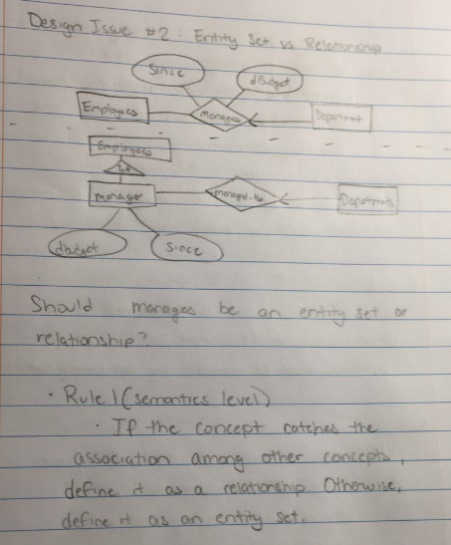 Design Issue #2: Entity Set vs Relationship
Since
dBudget
Employees
manages
Department
Employees
ISA
manager
managed-by
Departments
dbudget
Since
Should manages be an entity set or
relationship?
· Rule 1 (semantics level)
· If the concept catches the
association among other concepts,
define it as a relationship Otherwise,
define it as an entity set.